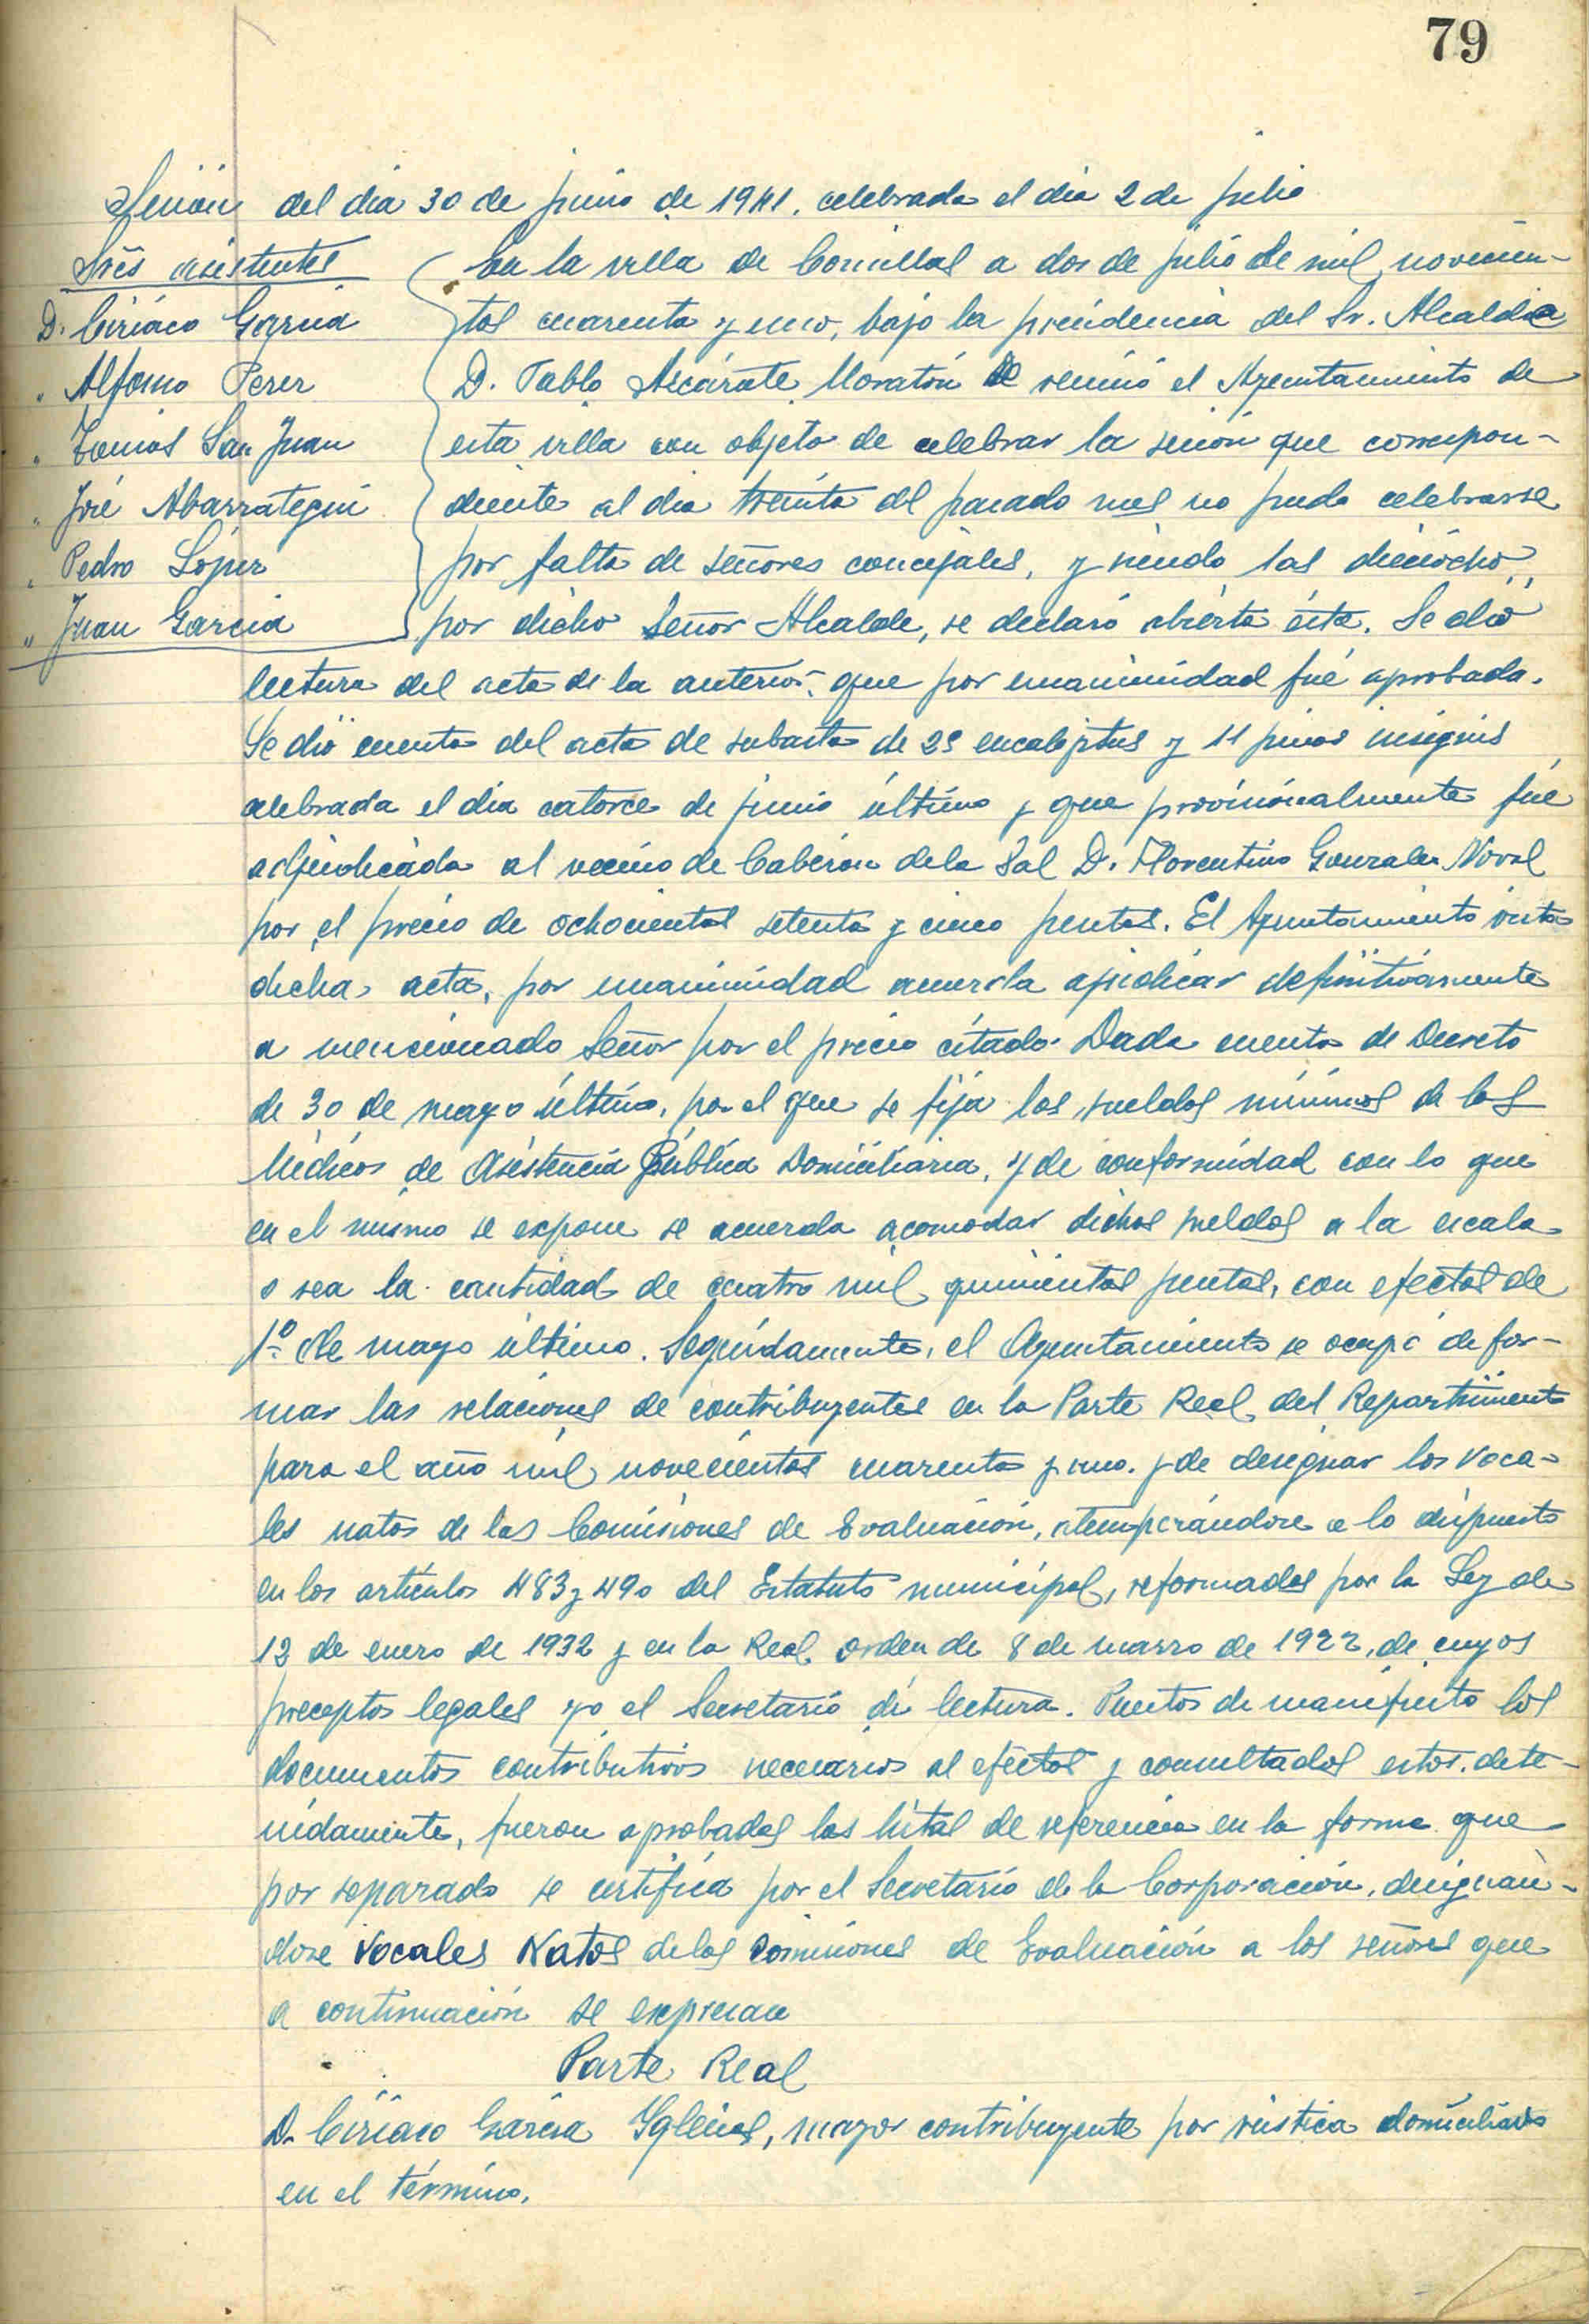 79
Sesión del dia 30 de junio de 1941, celebrada el dia 2 de julio
Sres asistentes
D. Ciriaco Garcia
" Alfonso Perez
" Tomás San Juan
" José Abarrategui
" Pedro López
" Juan Garcia
En la villa de Comillas a dos de julio de mil novecien-
tos cuarenta y uno, bajo la presidencia del Sr. Alcalde
D. Pablo Ascárate Moratón se reunió el Ayuntamiento de
esta villa con objeto de celebrar la sesión que correspon-
diente al dia treinta del pasado mes no pudo celebrarse
por falta de señores concejales, y siendo las dieciocho,
por dicho Señor Alcalde, se declaró abierta ésta. Se dió
lectura del acta de la anterior, que por unanimidad fué aprobada.
Se dió cuenta del acta de subasta de 25 eucaliptus y 11 pinos insignis
celebrada el dia catorce de junio último y que provisionalmente fué
adjudicada al vecino de Cabezon de la Sal D. Florentino Gonzalez Noval
por el precio de ochocientas setenta y cinco pesetas. El Ayuntamiento vista
dicha acta, por unanimidad acuerda ajudicar definitivamente
a mencionado Señor por el precio citado. Dada cuenta de Decreto
de 30 de mayo último, por el que se fija los sueldos mínimos de los
Médicos de Asistencia Pública Domiciliaria, y de conformidad con lo que
en el mismo se expone se acuerda acomodar dichos sueldos a la escala
o sea la cantidad de cuatro mil quinientas pesetas, con efectos de
1º de mayo último. Seguidamente, el Ayuntamiento se ocupó de for-
mar las relaciones de contribuyentes en la Parte Real del Repartimiento
para el año mil novecientos cuarenta y uno y de designar los Voca-
les natos de las Comisiones de Evaluación, atemperándose a lo dispuesto
en los artículos 483 y 490 del Estatuto municipal, reformados por la Ley de
12 de enero de 1932 y en la Real orden de 8 de marzo de 1922, de cuyos
preceptos legales yo el Secretario dí lectura. Puestos de manifiesto los
documentos contributivos necesarios al efectos y consultados estos dete-
nidamente, fueron aprobadas las listas de referencia en la forma que
por separado se certifica por el Secretario de la Corporación, designán-
dose Vocales Natos de las Comisiones de Evaluación a los señores que
a continuación se expresan
Parte Real
D. Ciriaco Garcia Yglesias, mayor contribuyente por rústica domiciliado
en el término.